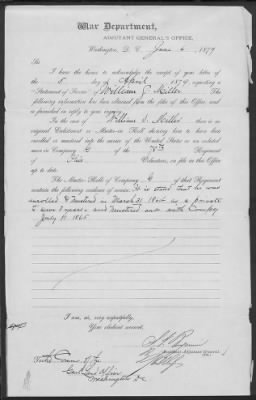 War Department,
ADJUTANT GENERAL'S OFFICE,
Washington, D. C., June 6, 1879
Sir
I have the honor to acknowledge the receipt of your letter of
the 8 day of April, 1879, requesting a
"Statement of Service" of William J. Miller. The
following information has been obtained from the files of this Office, and
is provided in reply to your request.
In the case of William J. Miller there is no
original Enlistment or Muster-in Roll showing him to have been
enrolled or mustered into the service of the United States as an enlisted
man in Company G of the 78th Regiment
of Volunteers, on file in this Office
up to date.
The Muster Rolls of Company G of that Regiment
contain the following evidence of service: It is stated that he was
enrolled & mustered in March 31, as a private
to serve years and mustered out with Company
July 11, 1865.
I am, sir, very respectfully,
Your obedient servant,
Assistant Adjutant General.
Gen'l Land Office
Washington, DC